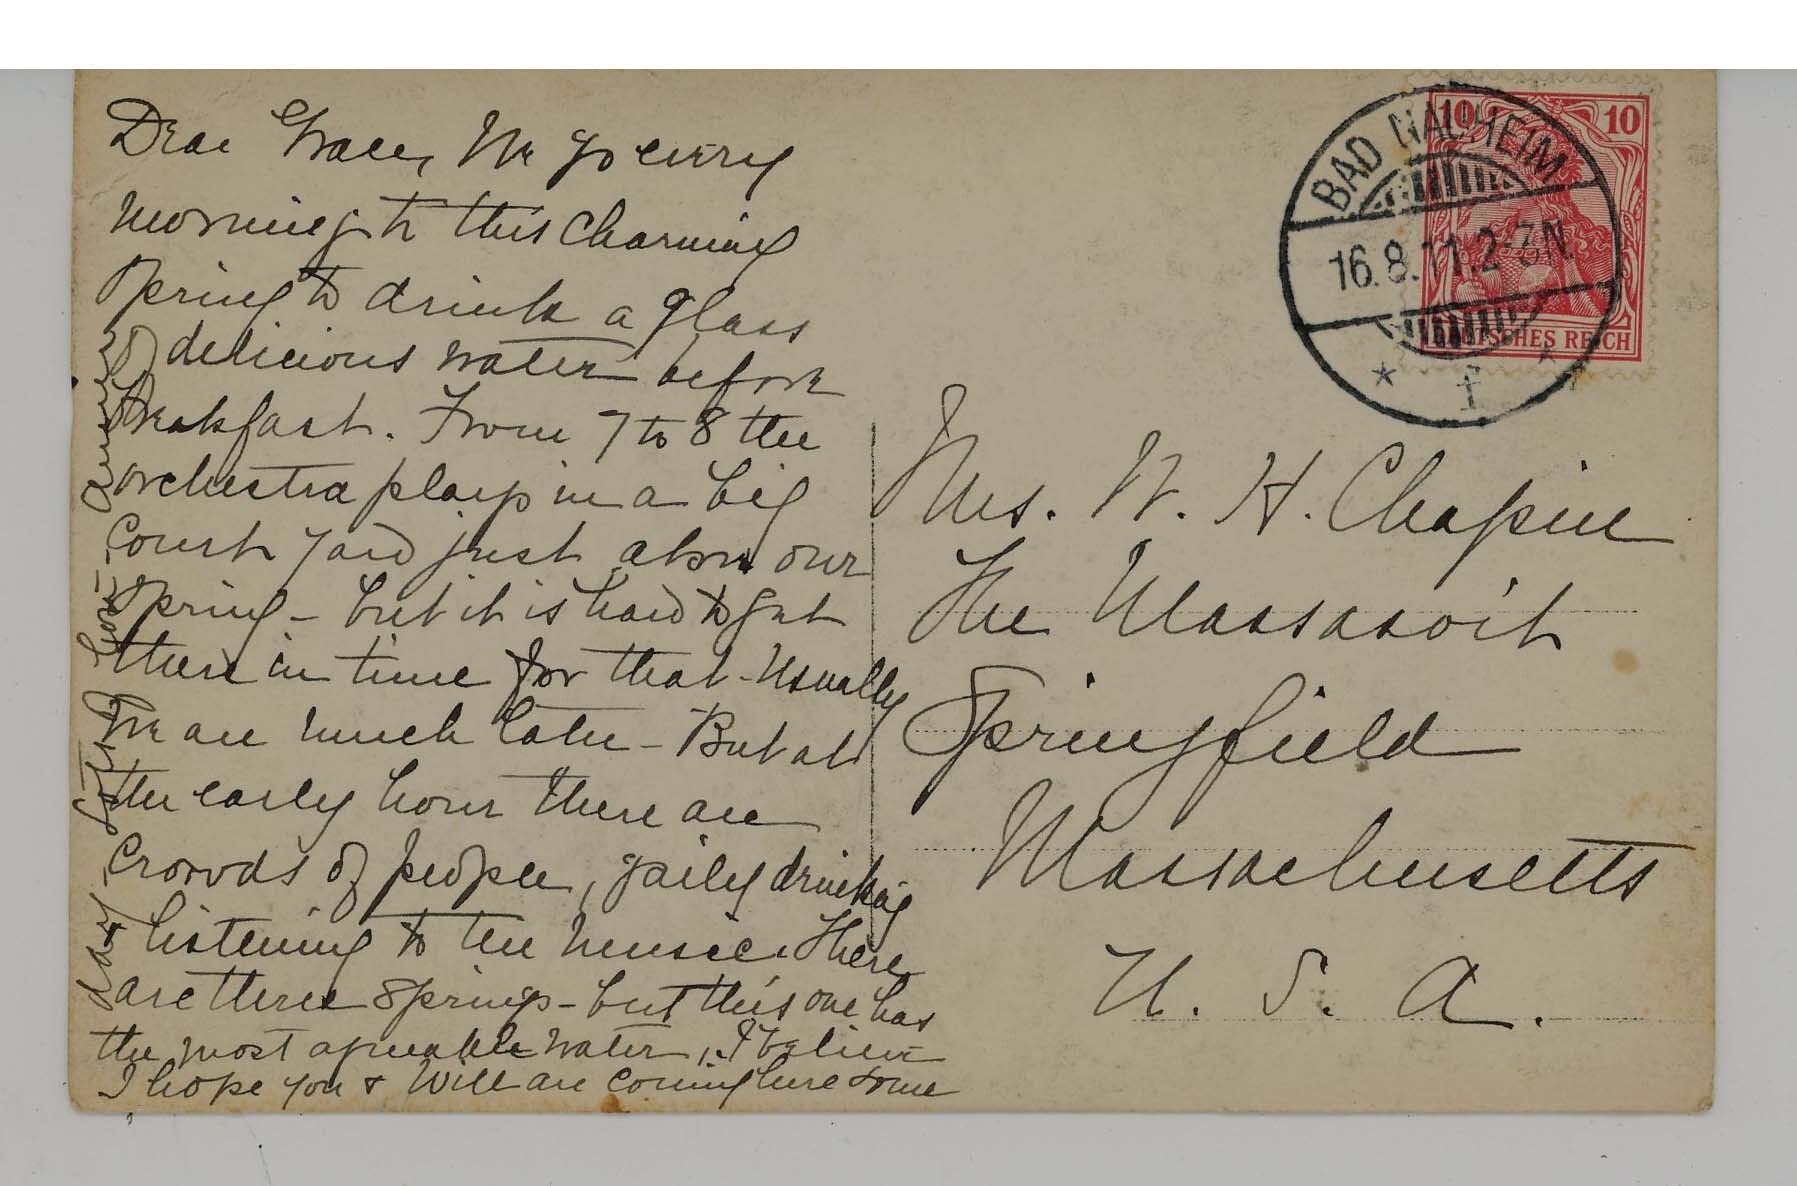 Dear Grace, We go every
morning to this charming
spring to drink a glass
of delicious water before
breakfast. From 7 to 8 the
orchestra plays in a big
court yard just above our
spring - but it is hard to get
there in time for that. Usually
we are much later - But at
the early hour there are
crowds of people, gaily drinking
+ listening to the music. There
are three springs - but this one has
the most agreeable water, I believe
I hope you + Will are coming here some
day. love -
BAD NAUHEIM
16.8.11.2-3N
* f *
10 10
DEUTSCHES REICH
Mrs. W. H. Chapin
The Massasoit
Springfield
Massachusetts
U. S. A.